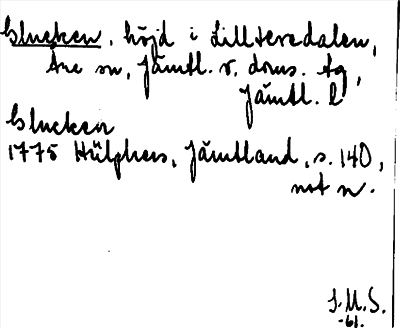 Glucken, höjd i Lillteredalen,
Åre sn, Jämtl. v. doms. tg,
Jämtl. l
Glucken
1775 Hülphers, Jämtland, s. 140,
not n.
J.M.S.
-61.